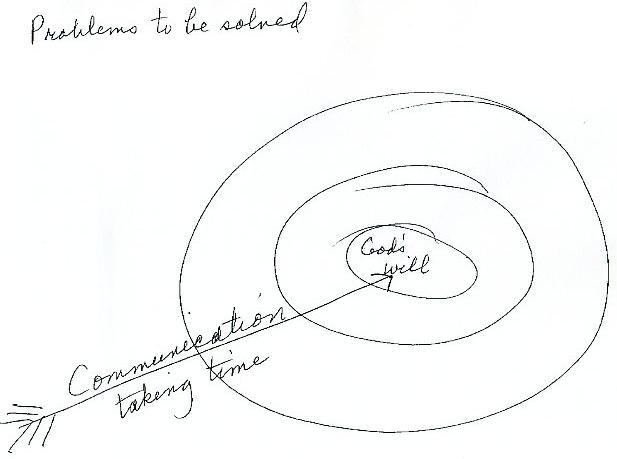 Problems to be solved
God's
will
Communication
taking time